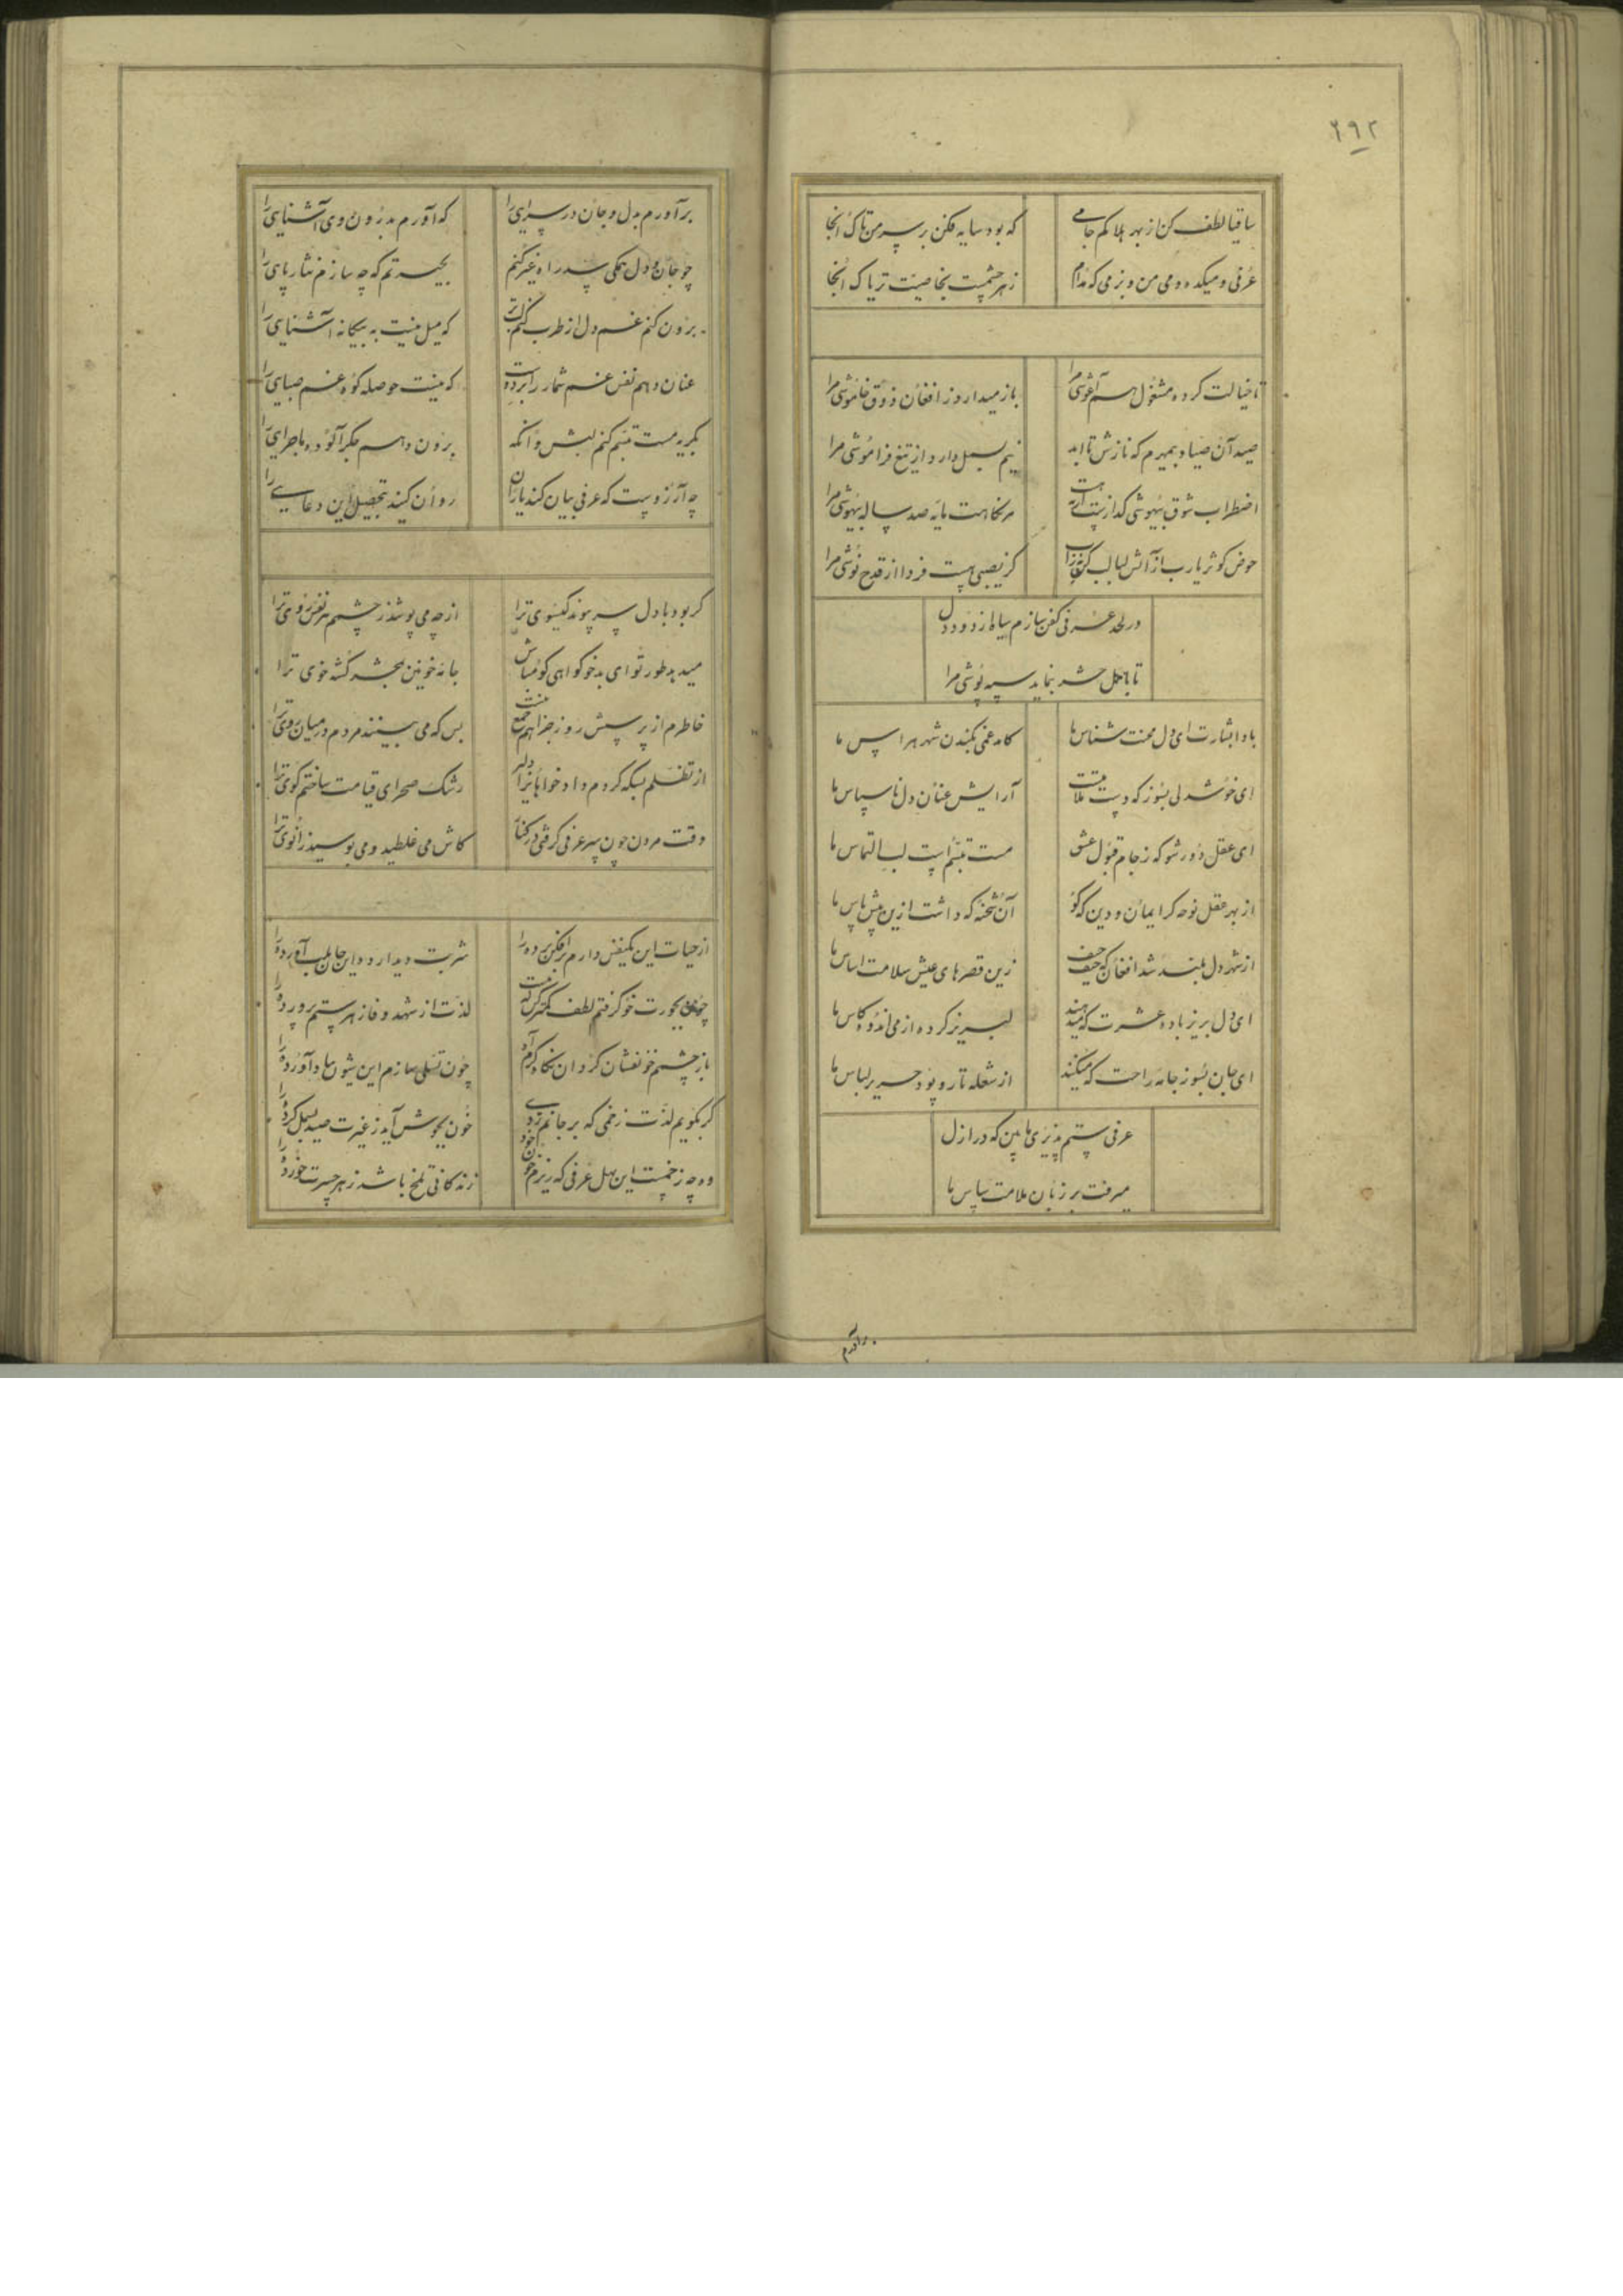 ۶۹۲
ساقیا لطف کن از بهر هلاکم جامی
که بود سایه فکن بر سر من تاک آنجا
عرفی و میکده و می من و بزمی که مدام
زهر چشمیت بخاصیت تریاک آنجا
تا خیالت کرده مشغول هم آغوشی مرا
باز میدارد ز افغان ذوق خاموشی مرا
صید آن صیاد بیرحمم که نازش تا ابد
نیم بسمل دارد از تیغ فراموشی مرا
اضطراب شوق بیهوشی
هر نگاهت مایه صد ساله بیهوشی مرا
حوض کوثر یا رب از آتش لبالب کن
کز نصیبی هست فردا از قدح نوشی مرا
در لحد عرفی کفن سازم سیاه از دود دل
تا باهل حشر بنماید سیه پوشی مرا
بادا بشارت ای دل محنت شناس ما
کامد غمی بکندن شهر هراس ما
ای خوشدلی بسوز که دست ملامتست
آرایش عنان دل ناسپاس ما
ای عقل دور شو که ز جام قبول عشق
مست تبسم است لب التماس ما
از بهر عقل نوحه گر ایمان و دین که گو
آن شحنه که داشت ازین پیش پاس ما
از شهر دل بلند شد افغان که حیف حیف
زین قصرهای عیش سلامت اساس ما
ای دل بریز باده عشرت که میدهند
لبریز کرده از می اندوه کاس ما
ای جان بسوز جامه راحت که میکنند
از شعله تار و پود حریر لباس ما
عرفی ستم پذیری ما بین که در ازل
میرفت بر زبان ملامت سپاس ما
برآورم
برآورم بدل و جان در سرایی را
که آورم بدرون وی آشنایی را
چو جان و دل همگی سد راه غیر کنم
بحیرتم که چه سازم نثار پایی را
برون کنم غم دل از طرب
که میل نیست به بیگانه آشنایی را
عنان دهم نفس غم شمار را
که نیست حوصله کوه غم صبایی را
بگریه مست تبسم کنم لبش وانگه
برون دهم جگر آلوده ماجرایی را
چه آرزوست که عرفی بیان کند یاران
روان کنید بتحصیل این دعایی را
گر بود با دل سر پیوند گیسوی ترا
از چه می پوشد ز چشمم هر نفس روی ترا
میدهد طور تو ای بدخو گواهی گو مباش
جامه خونین بحشر کشته خوی ترا
خاطرم از پرسش روز جزا هم جمع نیست
بس که می بینند مردم در میان روی ترا
از تظلم بسکه کردم دادخواهانرا دلیر
رشک صحرای قیامت ساختم کوی ترا
وقت مردن چون سر عرفی گرفتی در کنار
کاش می غلطید و می بوسید زانوی ترا
از حیات این یکنفس دارم برافکن پرده را
شربت دیدار ده این جان بلب آورده را
چون بجورت خو گرفتم لطف کمتر کن که نیست
لذت از شهد وفا زهر ستم پرورده را
باز چشمم خونفشان کرد آن نگاه گرم آه
چون تسلی سازم این شیون بیاد آورده را
گر بگویم لذت زخمی که بر جانم زدی
خون بجوش آید ز غیرت صید بسمل کرده را
وه چه زخمست این بهل عرفی که ریزم خون خود
زندگانی تلخ باشد زهر حسرت خورده را